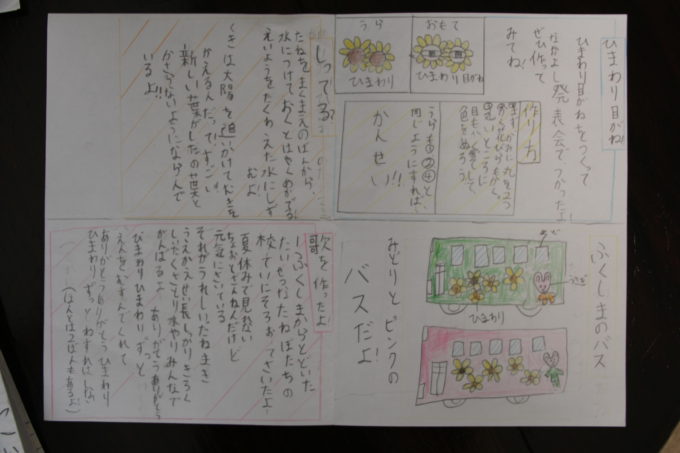 ひまわり目がね!
ひまわり目がねをつくって
なかよし発表会でつかったよ!
ぜひ作って
みてね!
おもて
ひまわり目がね
うら
ひまわり
作り方
目もいい色をして
色をぬろう
うらも①②④と
同じようにすれば、
かんせい!!
しってる?
たねをまくまえのばんから、
水につけておくとはやくめがでる
えいようをたくわえた水にしず
むよ
くきは太陽を追いかけてむきを
かえるんだって!すごい
新しい葉がしたの葉と
かさならないようにならんで
いるよ!!
ふくしまのバス
うさぎ
ひまわり
みどりとピンクの
バスだよ!
歌を作ったよ!
ふくしまからとどいた
たいせつなたねはたちの
校ていにそろってさいたよ
夏休みで見れない
元気にさいている
それがうれしいたねまき
うえかえせい長しっかりきろく
しいたくさとり水やりみんなで
がんばるよ ありがとうありがとう
ひまわりひまわりずっと
えんをむすんでくれて
ありがとうありがとうひまわり
ひまわりずっとわすれはしない
(ほんとは2ばんもあるよ)